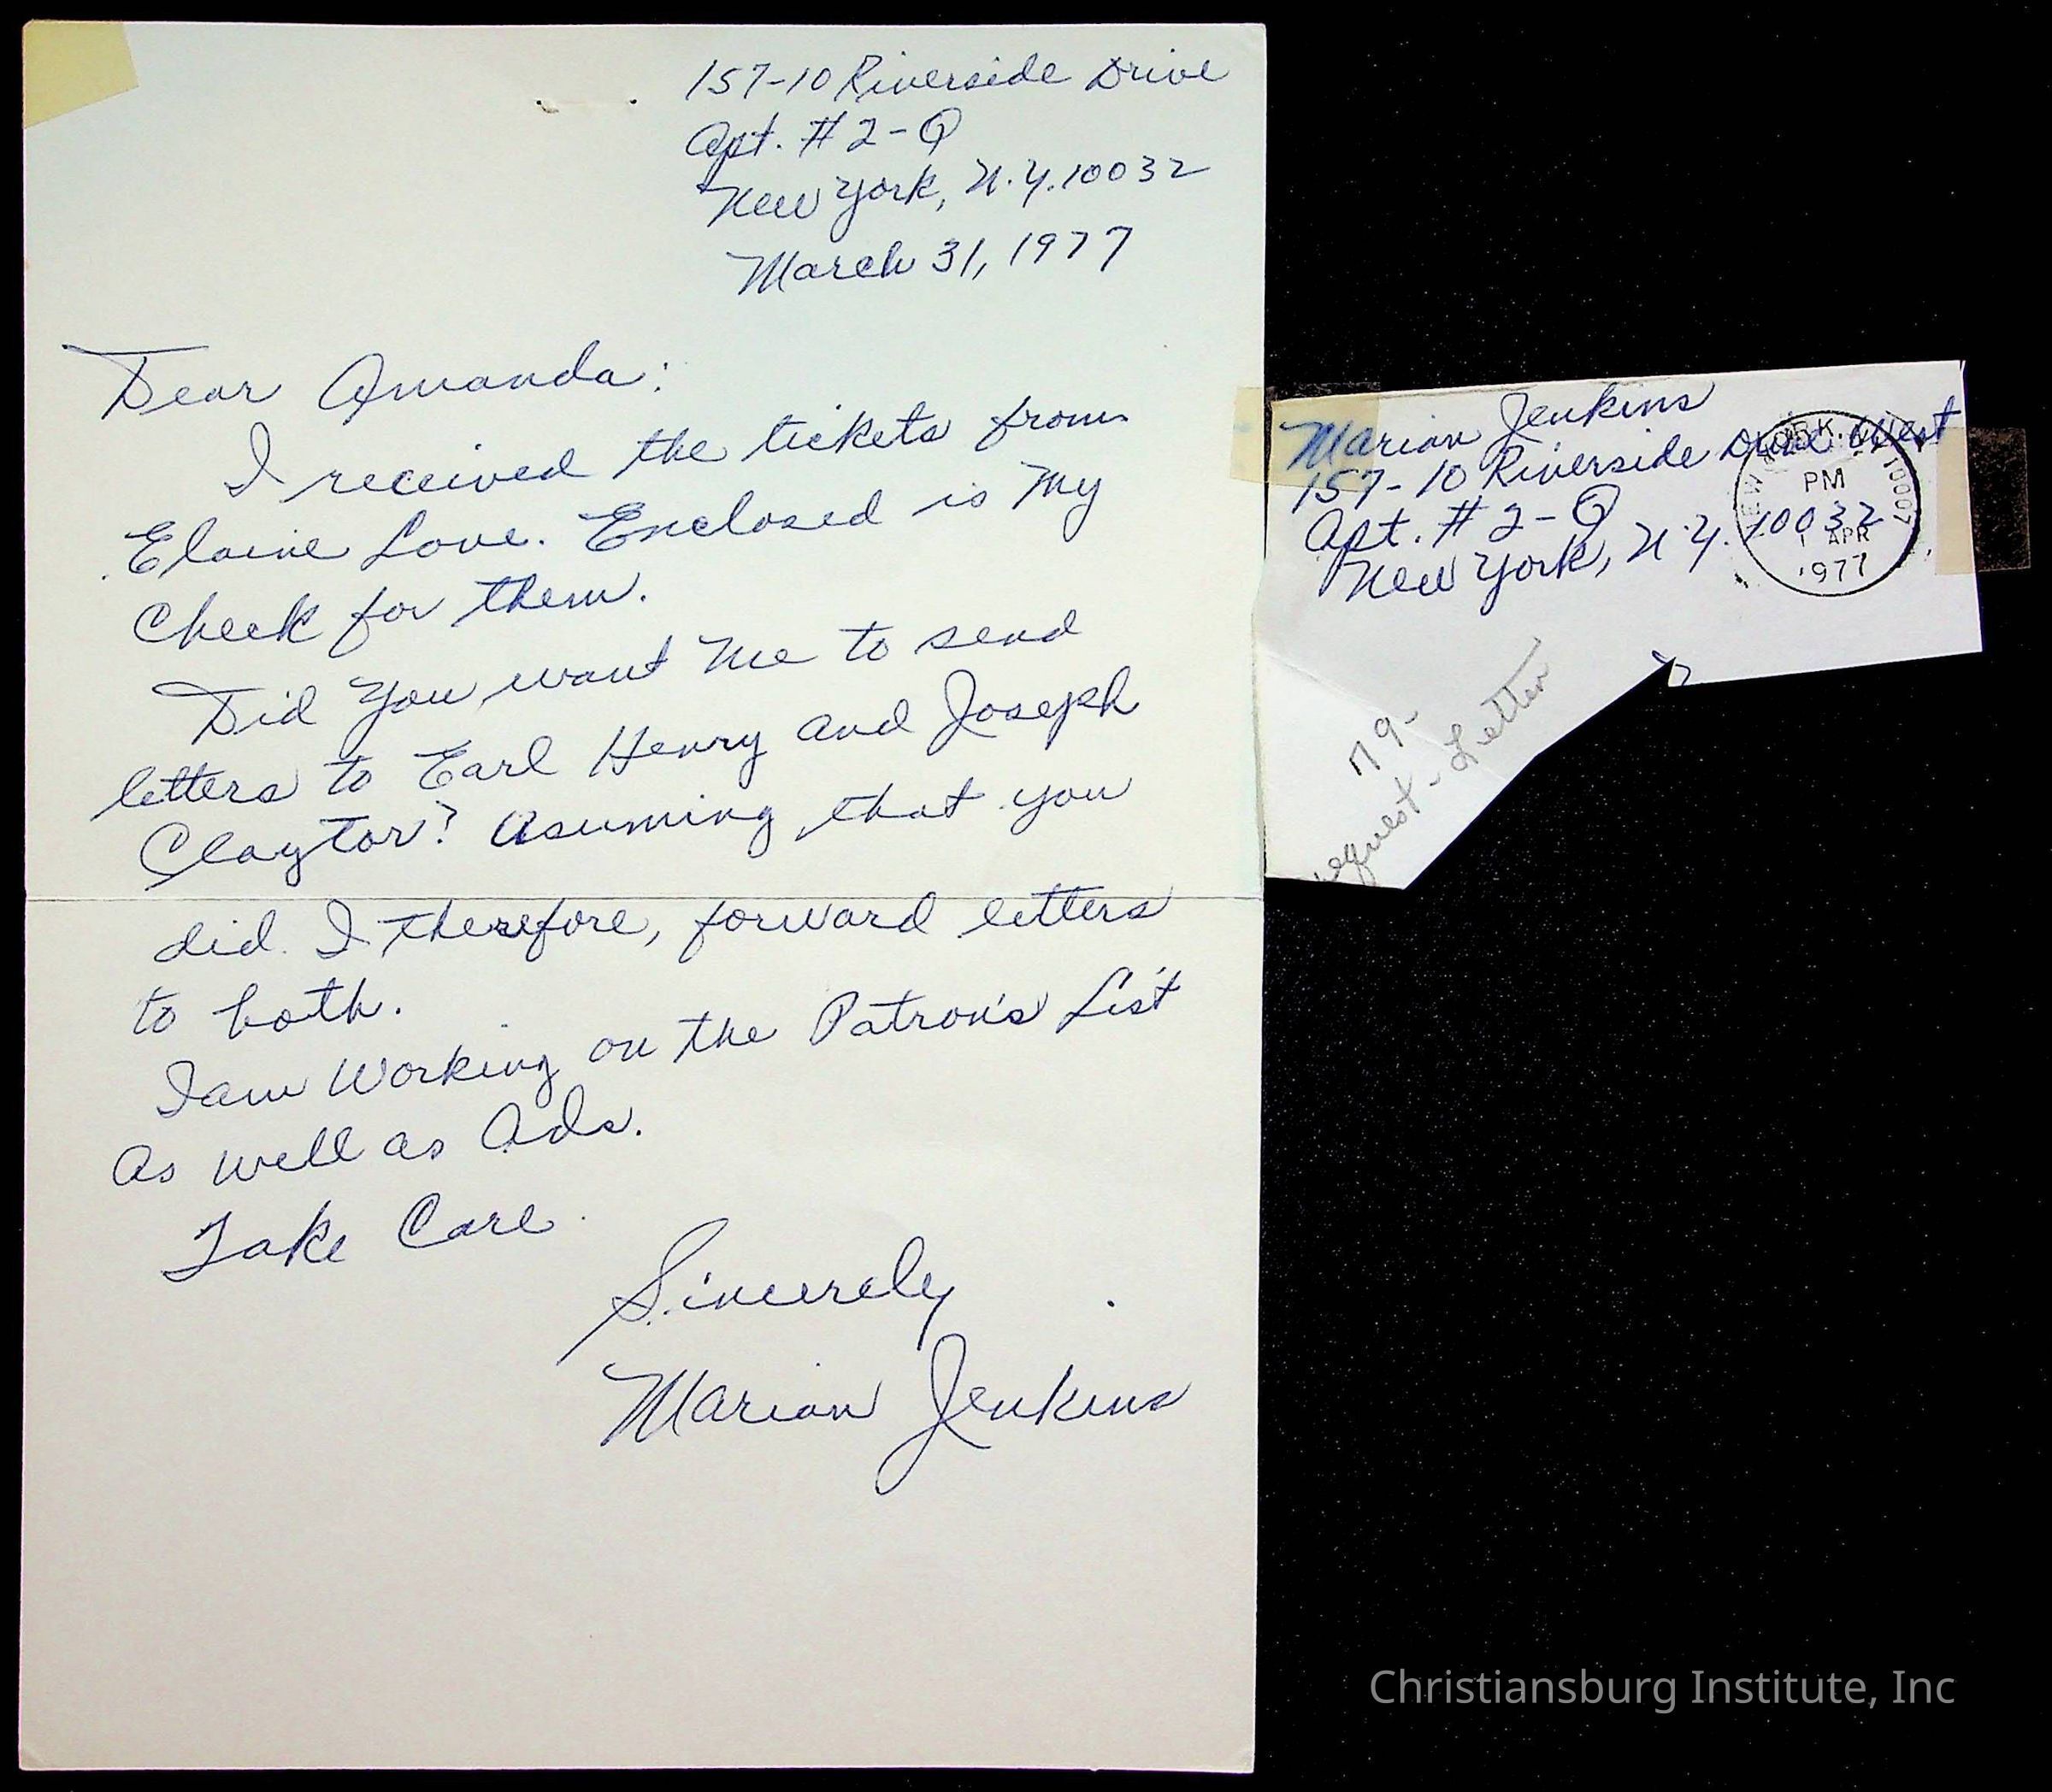 157-10 Riverside Drive
Apt. # 2-Q
New York, N.Y. 10032
March 31, 1977
Dear Amanda:
I received the tickets from
Elaine Love. Enclosed is My
Check for them.
Did you want Me to send
letters to Earl Henry and Joseph
Claytor? Asuming that you
did. I therefore, forward letters
to both.
I am Working on the Patron's List
As well as Ads.
Take Care
Sincerely
Marian Jenkins
Marian Jenkins
157-10 Riverside Drive West
Apt. # 2-Q
New York, N.Y. 10032
EW YORK, N.Y. 10007
PM
1 APR
1977
Request-Letter
Christiansburg Institute, Inc